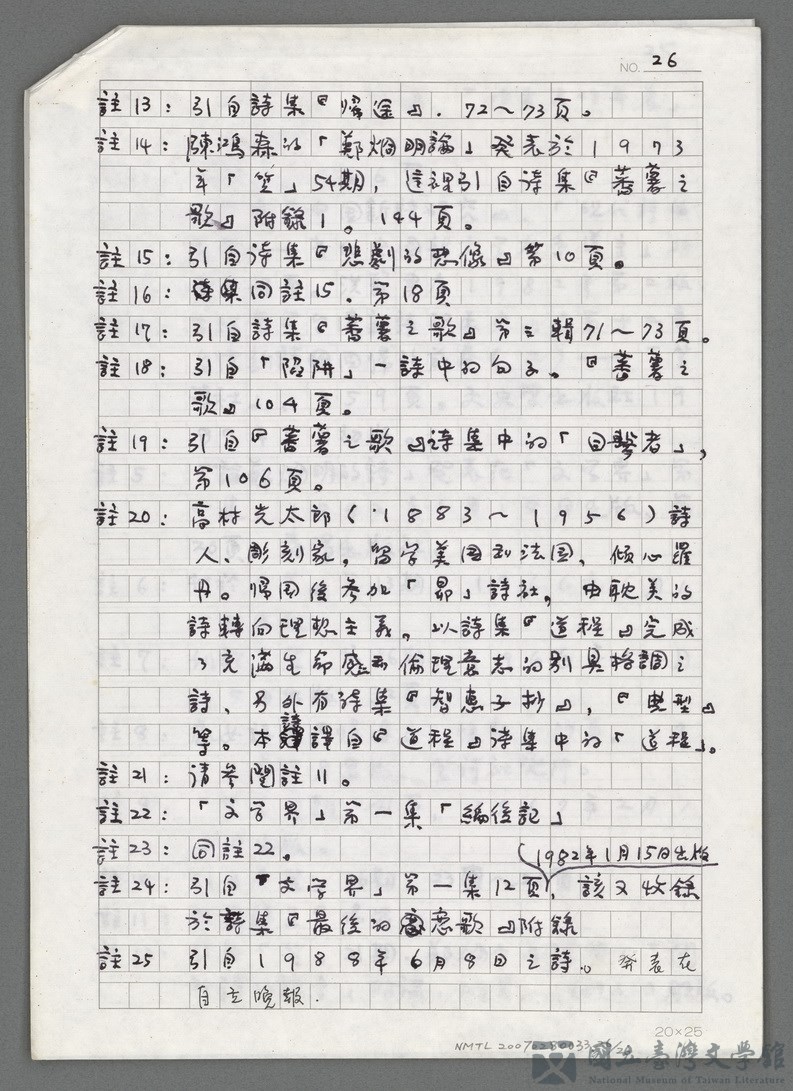 NO. 26
註13：引自詩集『歸途』. 72～73頁。
註14：陳鴻森的「鄭烱明論」發表於1973
年「笠」54期，這裸引自诗集『蕃薯之
歌』附錄1。144頁。
註15：引自诗集『悲劇的想像』第10頁。
註16：诗集同註15. 第18頁
註17：引自詩集『蕃薯之歌』第三輯71～73頁。
註18：引自「陷阱」一詩中的句子。『蕃薯之
歌』104頁。
註19：引自『蕃薯之歌』诗集中的「目擊者」，
第106頁。
註20：高村光太郎（1883～1956）詩
人、彫刻家，留学美国到法国，傾心羅
丹。歸国後參加「昴」詩社，由耽美的
詩轉向理想主義，以詩集『道程』完成
了充滿生命感和倫理意志的別具格調之
詩、另外有诗集『智惠子抄』，『典型』
等。本詩譯自『道程』诗集中的「道程」。
註21：请參閱註11。
註22：「文学界」第一集「編後記」
註23：同註22。
1982年1月15日出版
註24：引自「文学界」第一集12頁，該文收錄
於詩集『最後的戀歌』附錄
註25 引自1988年6月8日之詩。發表在
自立晚報.
20×25
NMTL 20070280033
國立臺灣文學館
National Museum of Taiwan Literature